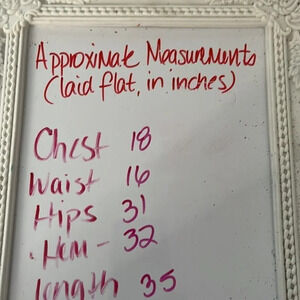 Approximate Measurements
(laid flat, in inches)
Chest 18
Waist 16
Hips 31
. Hem - 32
length 35